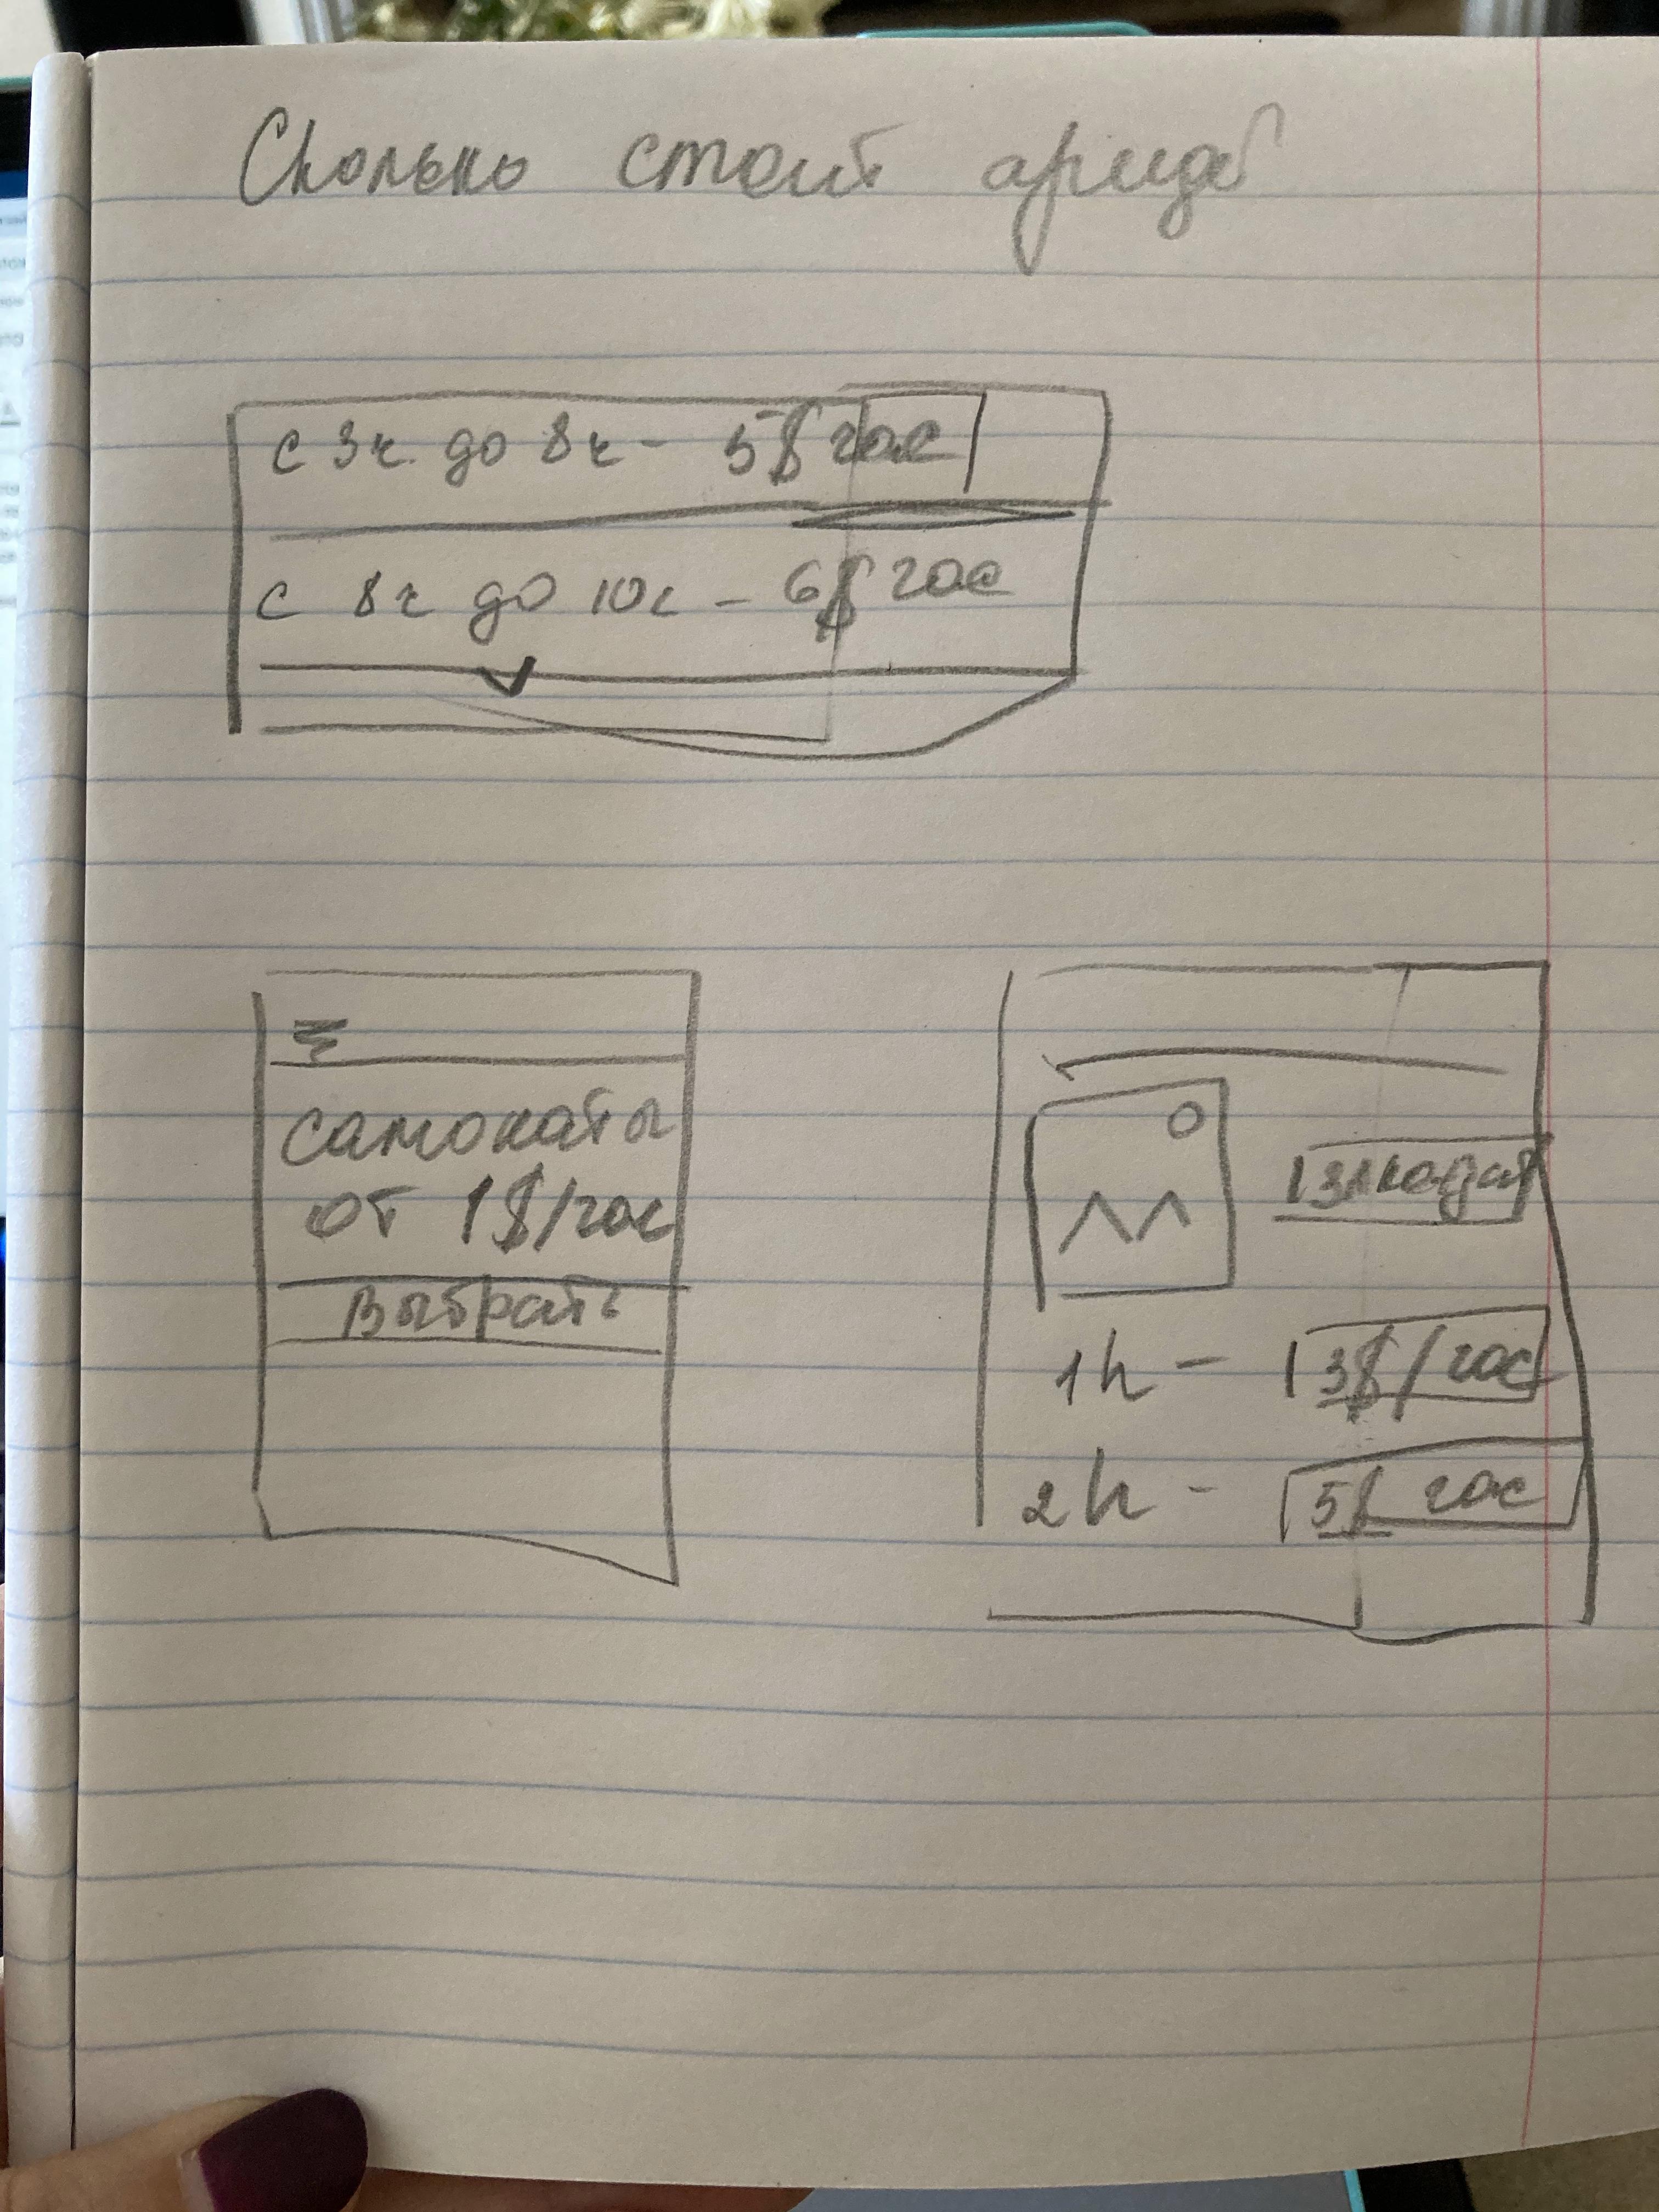 Сколько стоит аренда
с 3ч до 8ч - 5$ час
с 8ч до 10ч - 6$ час
самокаты
от 1$/час
Выбрать
1h - 3$/час
2h - 5$ час